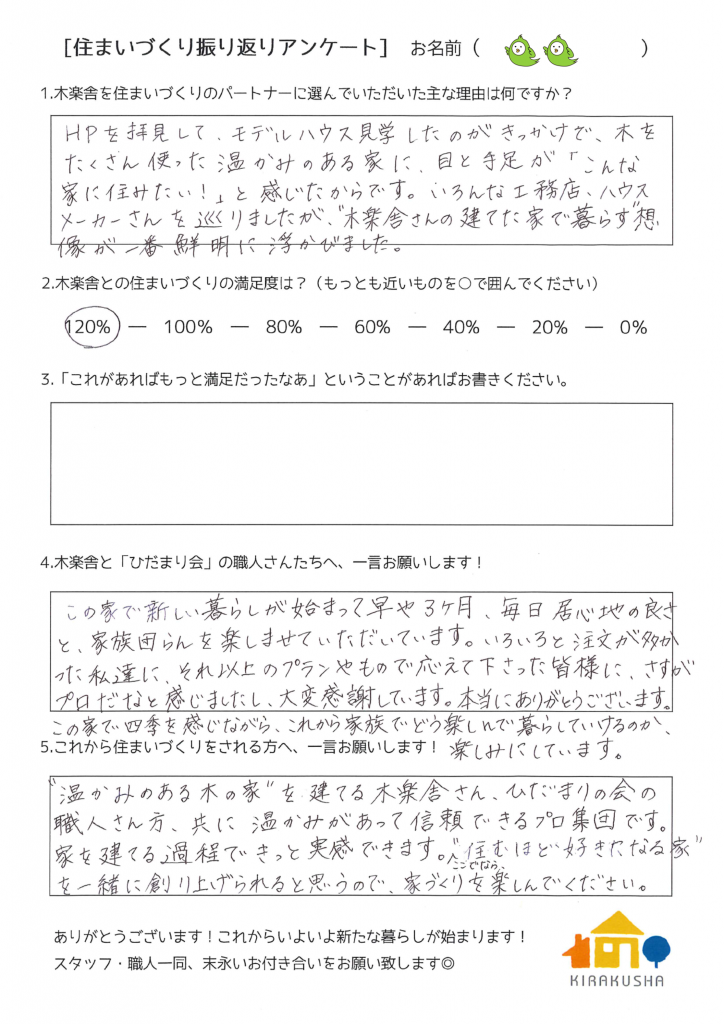 [住まいづくり振り返りアンケート]　お名前（　　　　　）
1.木楽舎を住まいづくりのパートナーに選んでいただいた主な理由は何ですか？
HPを拝見して、モデルハウス見学したのがきっかけで、木を
たくさん使った温かみのある家に、目と手足が「こんな
家に住みたい！」と感じたからです。いろんな工務店、ハウス
メーカーさんを巡りましたが、"木楽舎さんの建てた家で暮らす"想
像が一番鮮明に浮かびました。
2.木楽舎との住まいづくりの満足度は？（もっとも近いものを○で囲んでください）
120% ― 100% ― 80% ― 60% ― 40% ― 20% ― 0%
3.「これがあればもっと満足だったなあ」ということがあればお書きください。
4.木楽舎と「ひだまり会」の職人さんたちへ、一言お願いします！
この家で新しい暮らしが始まって早や3ヶ月、毎日居心地の良さ
と、家族団らんを楽しませていただいています。いろいろと注文が多か
った私達に、それ以上のプランやもので応えて下さった皆様に、さすが
プロだなと感じましたし、大変感謝しています。本当にありがとうございます。
この家で四季を感じながら、これから家族でどう楽しんで暮らしていけるのか、
楽しみにしています。
5.これから住まいづくりをされる方へ、一言お願いします！
"温かみのある木の家"を建てる木楽舎さん、ひだまりの会の
職人さん方、共に温かみがあって信頼できるプロ集団です。
家を建てる過程できっと実感できます。ここでなら、"住むほど好きになる家"
を一緒に創り上げられると思うので、家づくりを楽しんでください。
ありがとうございます！これからいよいよ新たな暮らしが始まります！
スタッフ・職人一同、末永いお付き合いをお願い致します◎
KIRAKUSHA